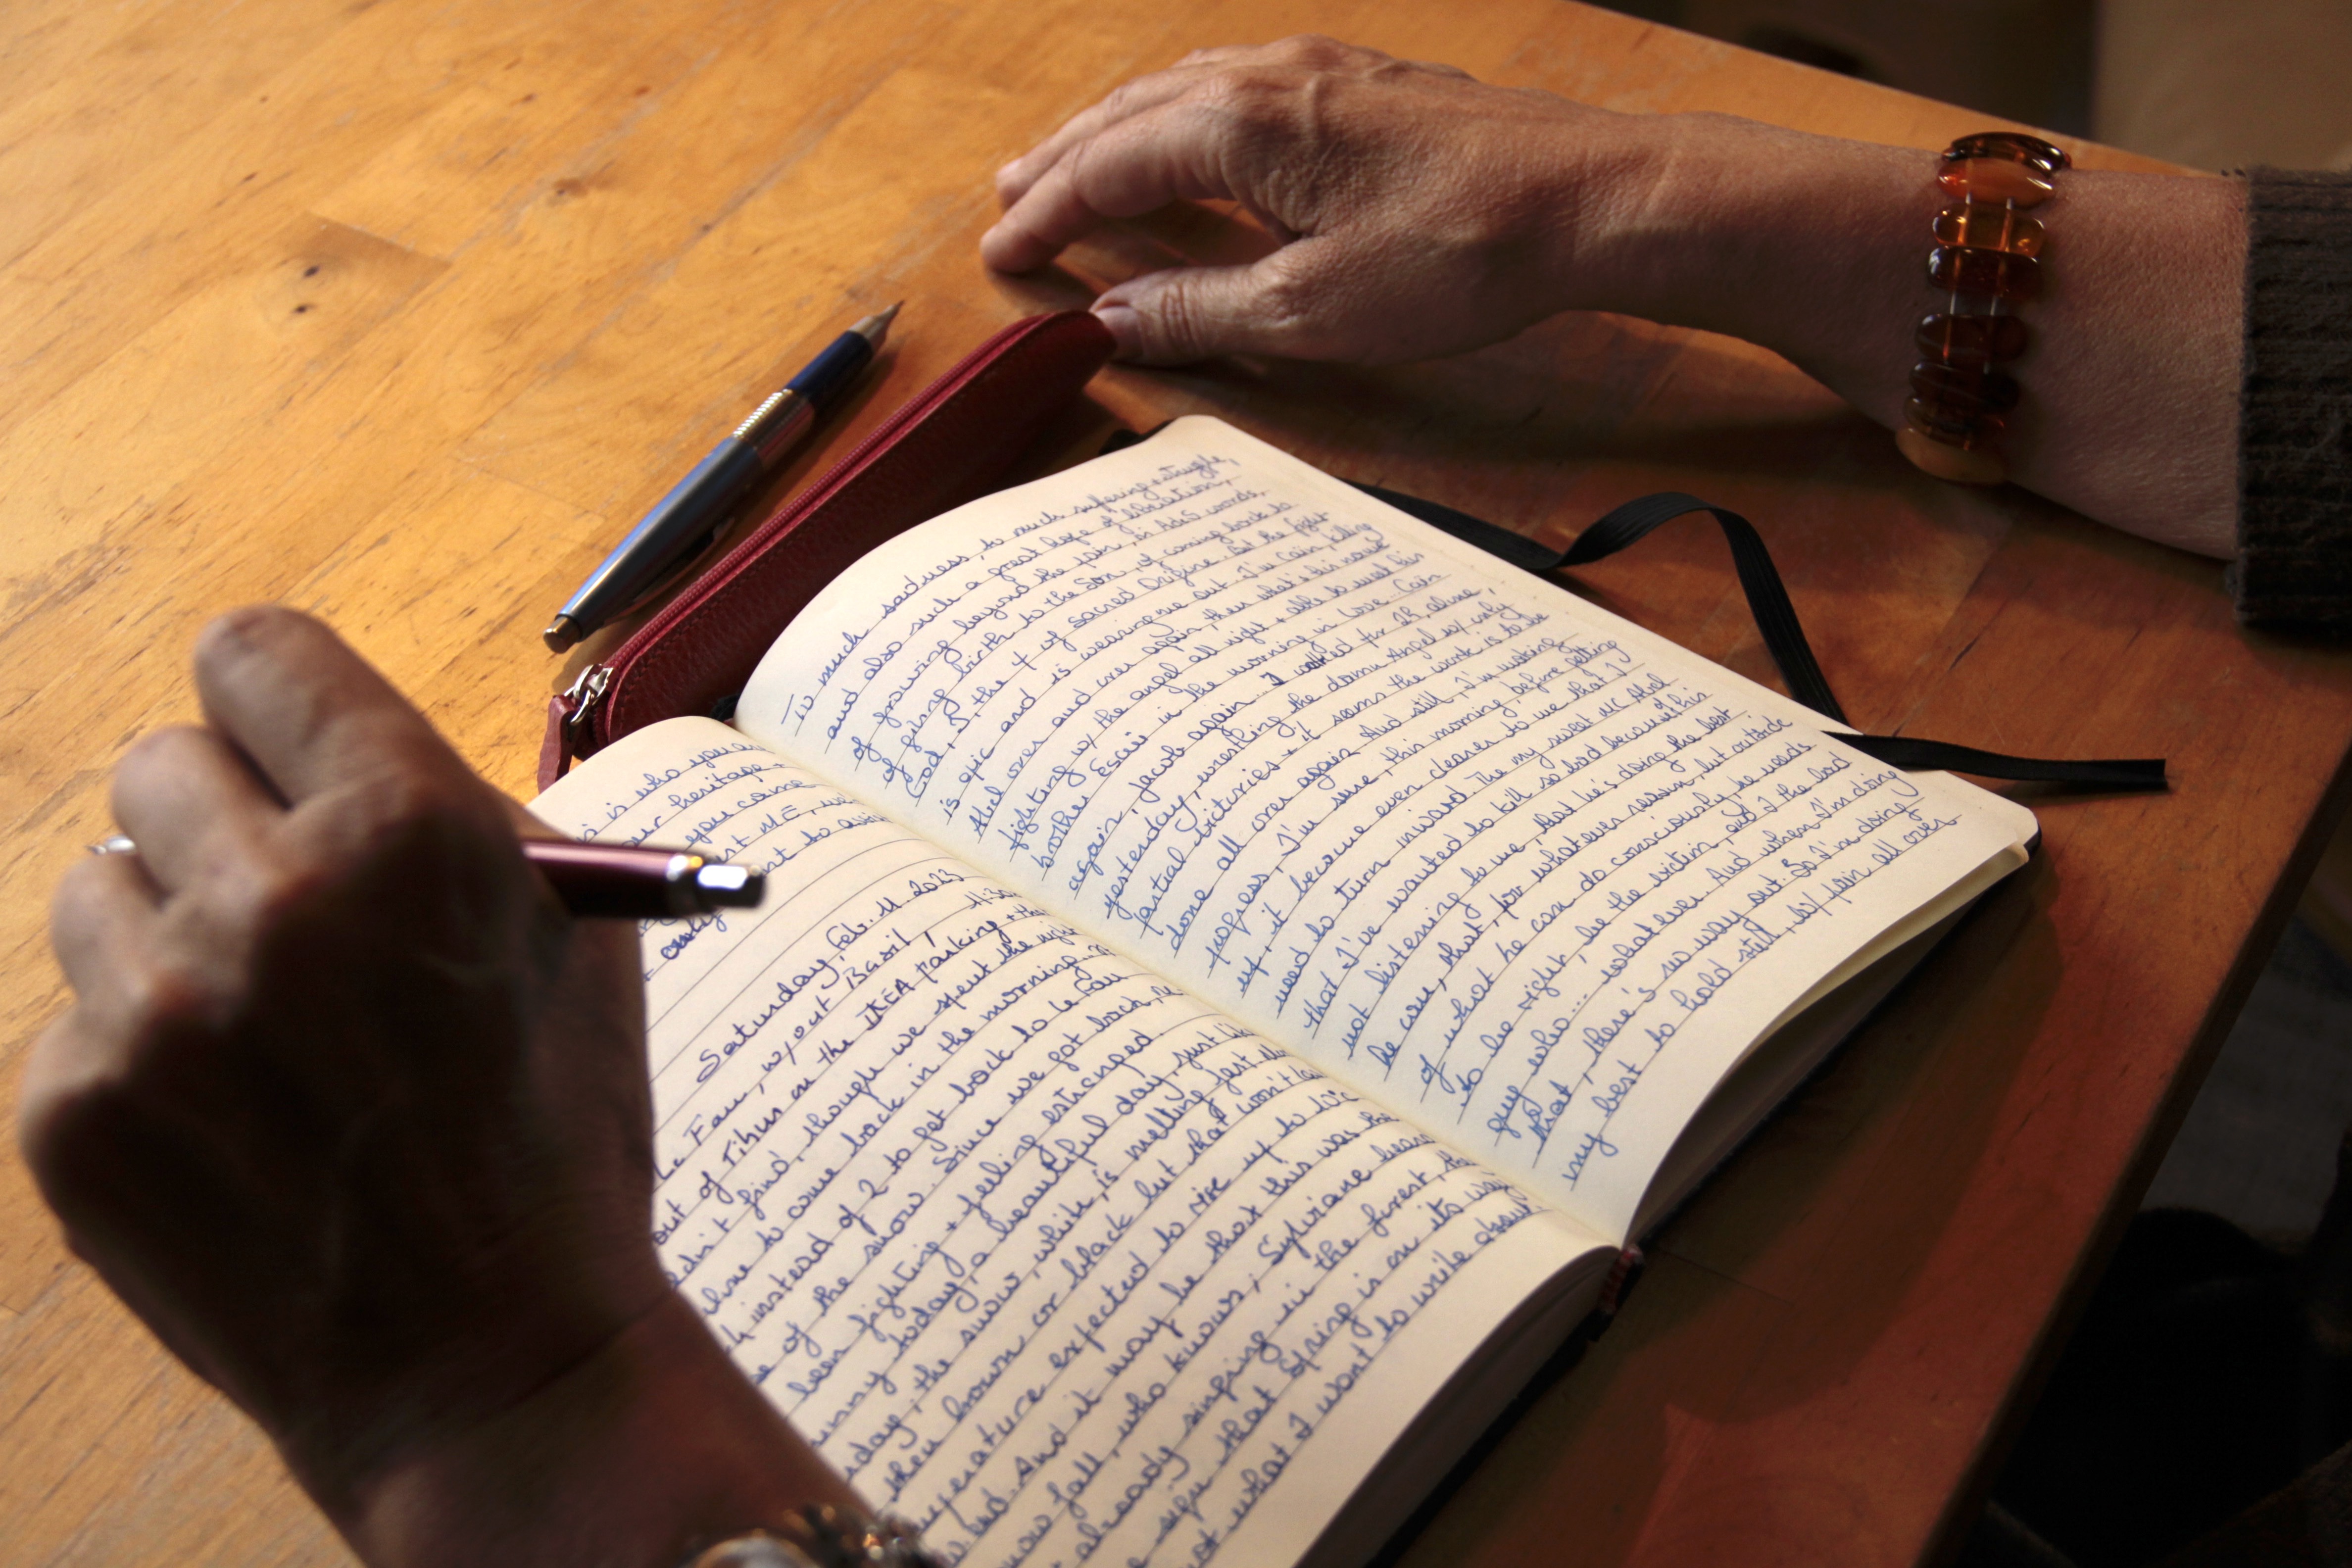 is who you are
our heritage
you come
st ME, we
st to
only
Saturday, Feb. 11. 2023
Le Fau, w/out Basil, 11:30
out of Tihus in the IKEA parking + the
didn't find, though we spent the night
to come back in the morning.
h instead of 2 to get back to Le Fau
of the snow. Since we got back,
been fighting + feeling estranged.
sunny today, a beautiful day, just like
day, the snow, while, is melting fast
then brown or black but that won't
temperature expected to rise up to 10°C
And it may be that this was the
snow fall, who knows; Sylviane hears
already singing in the forest, the
sign that Spring is on its way
not what I want to write about
To much sadness, to much suffering + struggle,
and also such a great hope of liberation,
of growing beyond the pain, in words,
of giving birth to the Son, of coming back to
God, I, the of sacred Origine. But the fight
is epic and is wearing me out. I'm Cain, killing
Abel over and over again, then what's his name
fighting w/ the angel all night + able to meet his
brother Esau in the morning in Love. Cain
again, Jacob again. I cried for 2h, alone,
yesterday, wrestling the damn Angel w/ only
partial victories + it seems the work is to be
done all over again. And still, I'm making
progress, I'm sure, this morning, before getting
up, it became even clearer to me that I
need to turn inward the my sweet Abel
that I've wanted to kill so bad because of his
not listening to me, that he's doing the best
he can, that, for whatever reason, but outside
of what he can do consciously he needs
to be right, be the victim, and I the bad
guy who... whatever. And when I'm doing
that, there's no way out. So I'm doing
my best to hold still, w/ pain all over